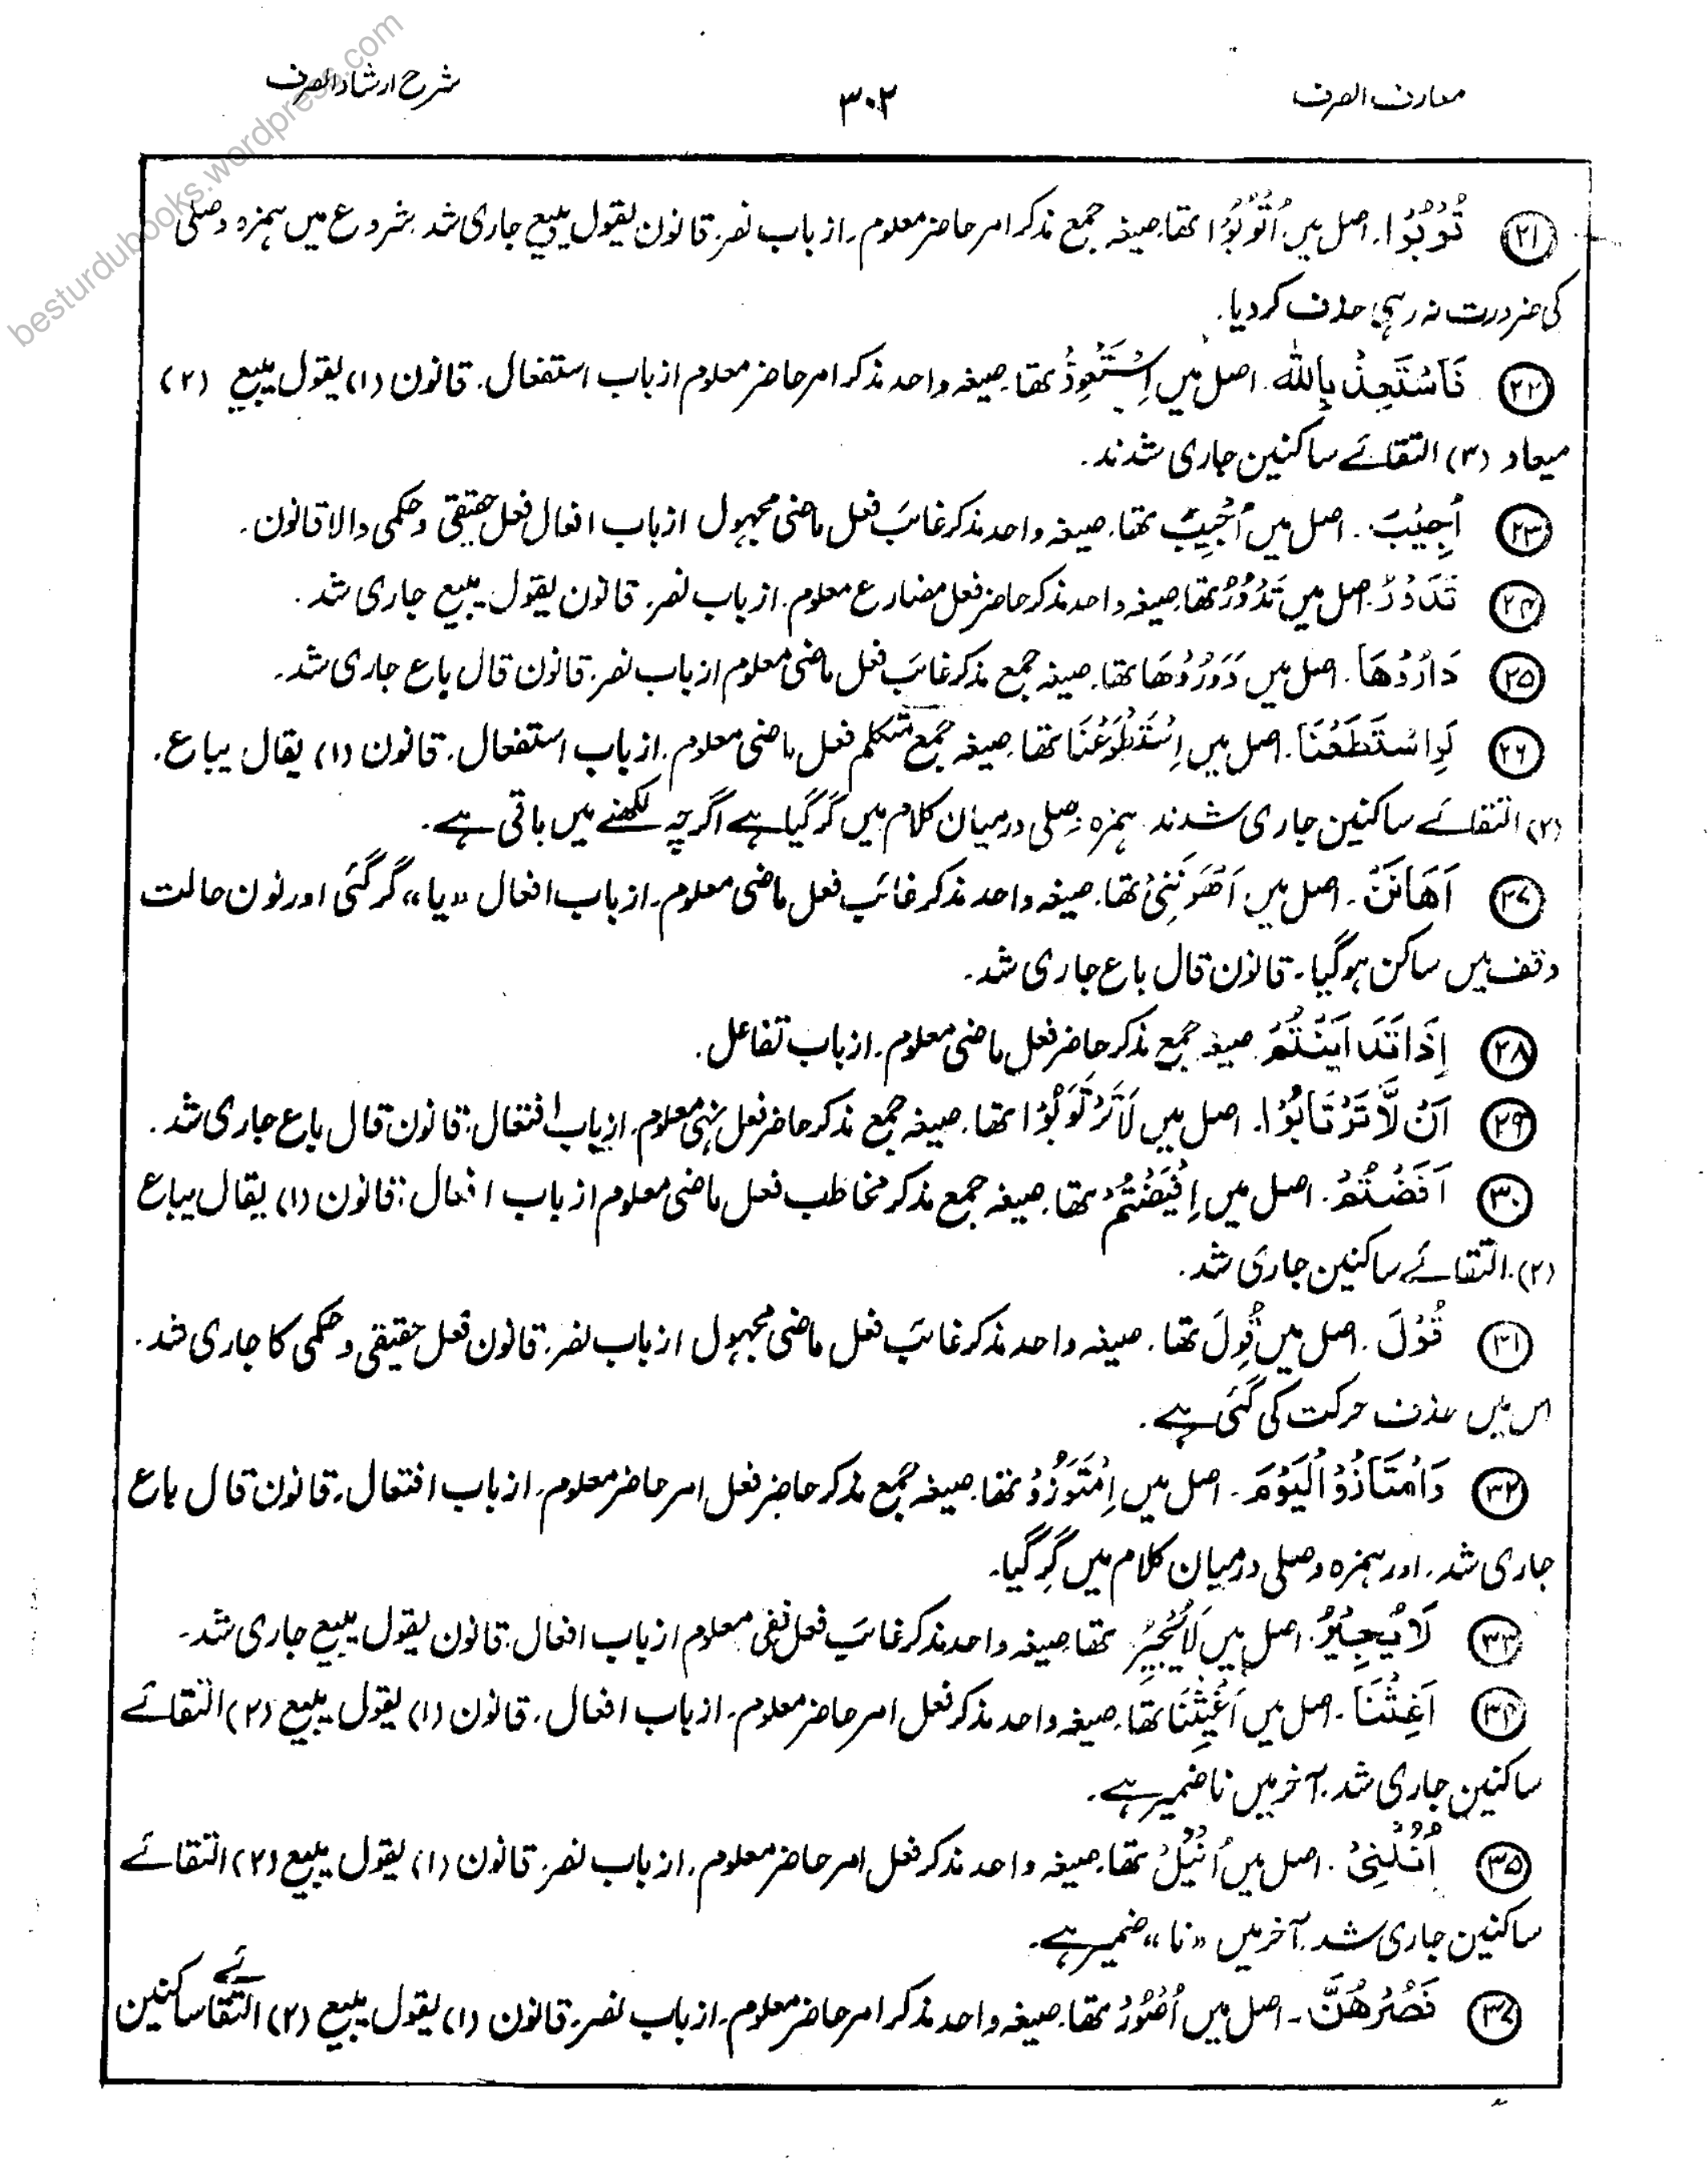 معارف الصرف
۳۰۲
شرح ارشاد الصرف
besturdubooks.wordpress.com
(۲۱) تُوْبُوْا۔ اصل میں اُتْوُبُوْا تھا۔ صیغہ جمع مذکر امر حاضر معلوم۔ از باب نصر۔ قانون یقول یبیع جاری شد۔ شروع میں ہمزہ وصلی
کی ضرورت نہ رہی حذف کر دیا۔
(۲۲) فَاسْتَعِذْ بِاللّٰہ۔ اصل میں اِسْتَعْوِذْ تھا۔ صیغہ واحد مذکر امر حاضر معلوم از باب استفعال۔ قانون (۱) یقول یبیع (۲)
میعاد (۳) التقائے ساکنین جاری شدند۔
(۲۳) اُجِیْبَ۔ اصل میں اُجْیِبَ تھا۔ صیغہ واحد مذکر غائب فعل ماضی مجہول از باب افعال فعل حقیقی و حکمی والا قانون۔
(۲۴) تَدُوْرُ۔ اصل میں تَدْوُرُ تھا۔ صیغہ واحد مذکر حاضر فعل مضارع معلوم۔ از باب نصر۔ قانون یقول یبیع جاری شد۔
(۲۵) دَارُوْھَا۔ اصل میں دَوَرُوْھَا تھا۔ صیغہ جمع مذکر غائب فعل ماضی معلوم از باب نصر۔ قانون قال باع جاری شد۔
(۲۶) لَوِاسْتَطَعْنَا۔ اصل میں اِسْتَطْوَعْنَا تھا۔ صیغہ جمع متکلم فعل ماضی معلوم۔ از باب استفعال۔ قانون (۱) یقال یباع۔
(۲) التقائے ساکنین جاری شدند۔ ہمزہ وصلی درمیان کلام میں گر گیا ہے اگرچہ لکھنے میں باقی ہے۔
(۲۷) اَھَانَنْ۔ اصل میں اَھْوَنَنِیْ تھا۔ صیغہ واحد مذکر غائب فعل ماضی معلوم۔ از باب افعال «یا» گر گئی اور نون حالت
وقف میں ساکن ہوگیا۔ قانون قال باع جاری شد۔
(۲۸) اِذَا تَدَایَنْتُمْ صیغہ جمع مذکر حاضر فعل ماضی معلوم۔ از باب تفاعل۔
(۲۹) اَنْ لَّا تَرْتَابُوْا۔ اصل میں لَا تَرْتَوِبُوْا تھا۔ صیغہ جمع مذکر حاضر فعل نہی معلوم۔ از باب افتعال۔ قانون قال باع جاری شد۔
(۳۰) اَفَضْتُمْ۔ اصل میں اِفْیَضْتُمْ تھا۔ صیغہ جمع مذکر مخاطب فعل ماضی معلوم از باب افعال۔ قانون (۱) یقال یباع
(۲) التقائے ساکنین جاری شد۔
(۳۱) قُوْلَ۔ اصل میں قُوِلَ تھا۔ صیغہ واحد مذکر غائب فعل ماضی مجہول از باب نصر۔ قانون فعل حقیقی و حکمی کا جاری شد۔
اس میں حذف حرکت کی گئی ہے۔
(۳۲) وَامْتَازُوْ الْیَوْمَ۔ اصل میں اِمْتَوَزُوْ تھا۔ صیغہ جمع مذکر حاضر فعل امر حاضر معلوم۔ از باب افتعال۔ قانون قال باع
جاری شد۔ اور ہمزہ وصلی درمیان کلام میں گِر گیا۔
(۳۳) لَا یُجِیْرُ۔ اصل میں لَا یُجْیِرُ تھا صیغہ واحد مذکر غائب فعل نفی معلوم از باب افعال۔ قانون یقول یبیع جاری شد۔
(۳۴) اَغِثْنَا۔ اصل میں اَغْیِثْنَا تھا۔ صیغہ واحد مذکر فعل امر حاضر معلوم۔ از باب افعال۔ قانون (۱) یقول یبیع (۲) التقائے
ساکنین جاری شد۔ آخر میں نا ضمیر ہے۔
(۳۵) اُنُلْنِیْ۔ اصل میں اُنْیُلْ تھا۔ صیغہ واحد مذکر فعل امر حاضر معلوم۔ از باب نصر۔ قانون (۱) یقول یبیع (۲) التقائے
ساکنین جاری شد۔ آخر میں «نا» ضمیر ہے۔
فَصُرْھُنَّ۔ اصل میں اُصْوُرْ تھا۔ صیغہ واحد مذکر امر حاضر معلوم۔ از باب نصر۔ قانون (۱) یقول یبیع (۲) التقائے ساکنین